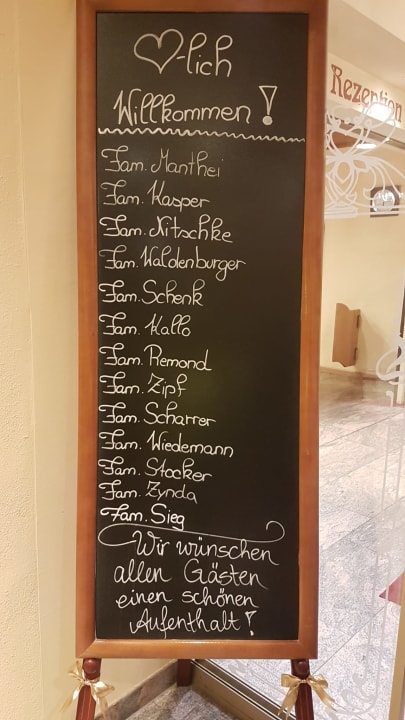 ♡-lich
Willkommen!
Rezeption
Fam. Manthei
Fam. Kasper
Fam. Nitschke
Fam. Waldenburger
Fam. Schenk
Fam. Kallo
Fam. Remond
Fam. Zipf
Fam. Scharrer
Fam. Wiedemann
Fam. Stocker
Fam. Zynda
Fam. Sieg
Wir wünschen
allen Gästen
einen schönen
Aufenthalt!